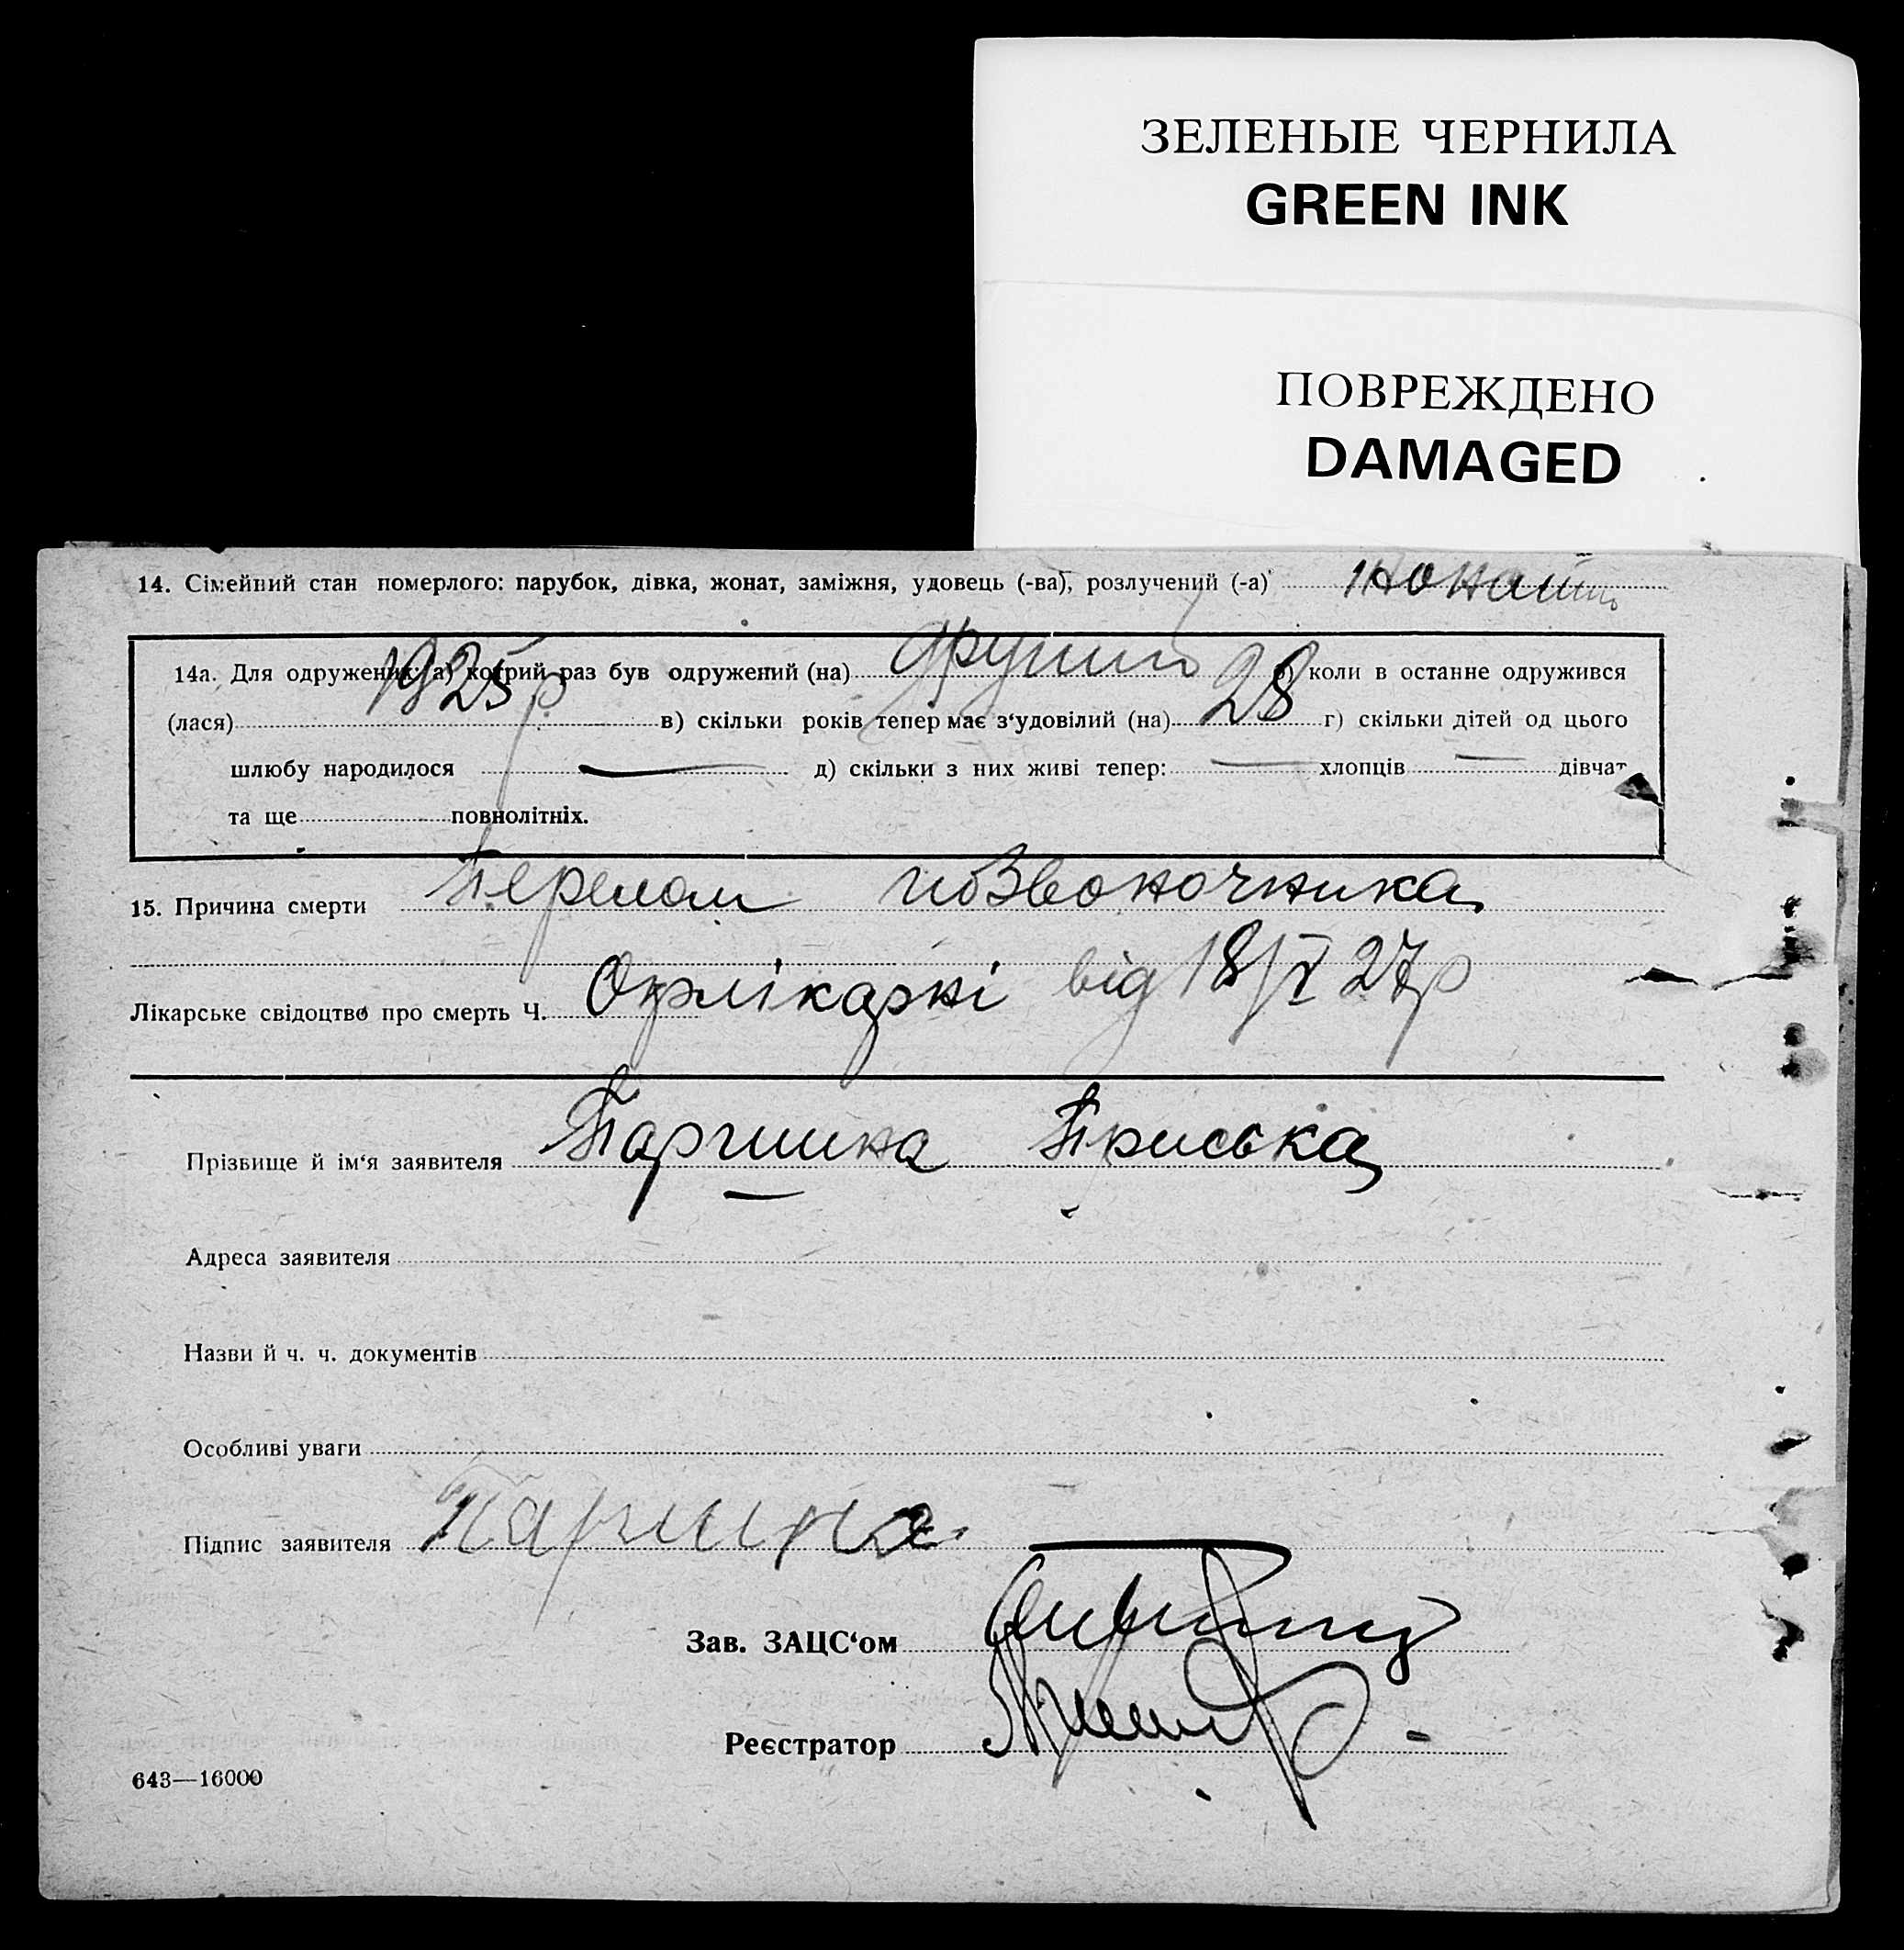 ЗЕЛЕНЫЕ ЧЕРНИЛА
GREEN INK
ПОВРЕЖДЕНО
DAMAGED
14. Сімейний стан померлого: парубок, дівка, жонат, заміжня, удовець (-ва), розлучений (-а) жонатий
14а. Для одружених: а) котрий раз був одружений (на) другий б) коли в останне одружився
(лася) 1925 р в) скільки років тепер має з'удовілий (на) 28 г) скільки дітей од цього
шлюбу народилося — д) скільки з них живі тепер: — хлопців — дівчат
та ще повнолітніх.
15. Причина смерти Перелом позвоночника
Лікарське свідоцтво про смерть Ч. Окрлікарні від 18/V 27р
Прізвище й ім'я заявителя Паршина Приська
Адреса заявителя
Назви й ч. ч. документів
Особливі уваги
Підпис заявителя Паршина
Зав. ЗАЦС'ом
Реєстратор
643—16000